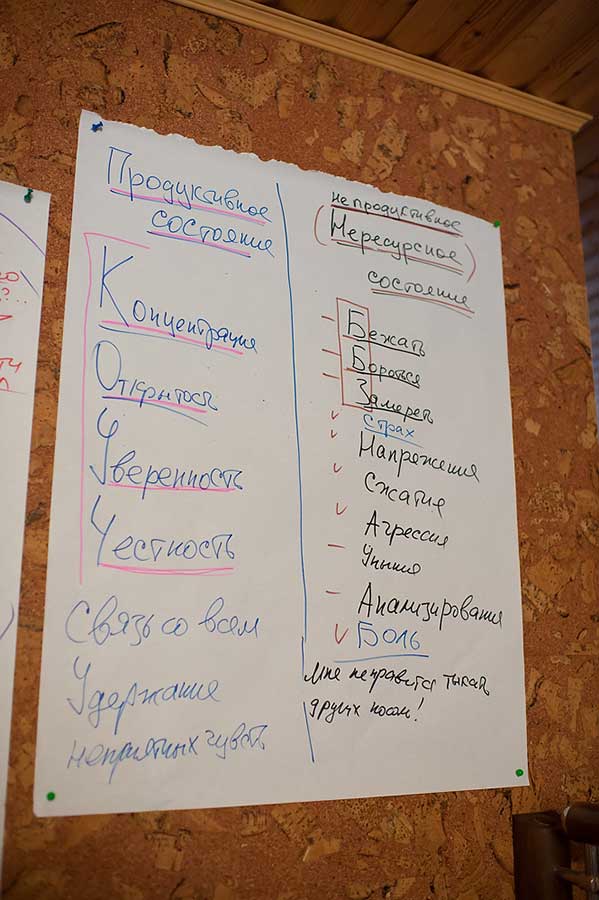 Продуктивное
состояние
Концентрация
Открытость
Уверенность
Честность
Связь со всем
Удержание
неприятных чувств
непродуктивное
(Нересурсное)
состояние
– Бежать
– Бороться
– Замереть
✓ Страх
✓ Напряжения
✓ Сжатия
✓ Агрессия
– Уныния
– Анализирование
✓ Боль
Мне не нравится тыкать
других носом!